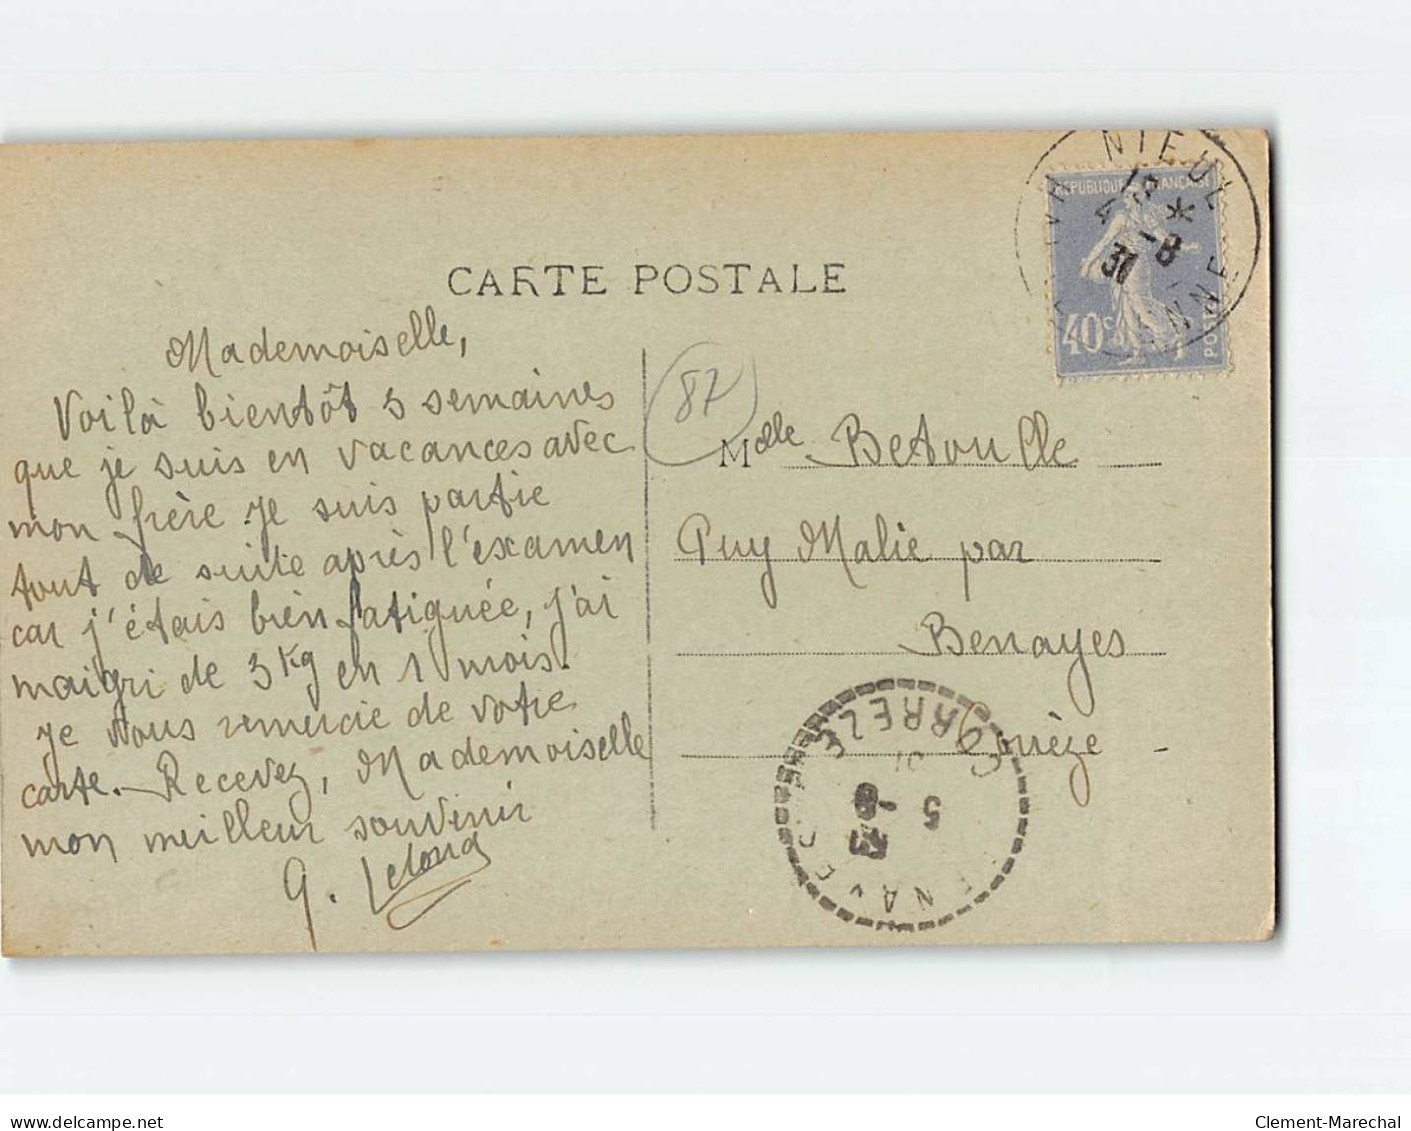 CARTE POSTALE
Mademoiselle,
Voilà bientôt 3 semaines
que je suis en vacances avec
mon frère. Je suis partie
tout de suite après l'examen
car j'étais bien fatiguée, j'ai
maigri de 3 kg en 1 mois.
Je vous remercie de votre
carte. Recevez, Mademoiselle
mon meilleur souvenir
G. Lelong
87
Melle Betoulle
Puy Malie par
Benayes
Corrèze
REPUBLIQUE FRANÇAISE
40c
POSTES
NIEUL
31
-8
CORREZE
5 -8
31
delcampe.net
Clement-Marechal